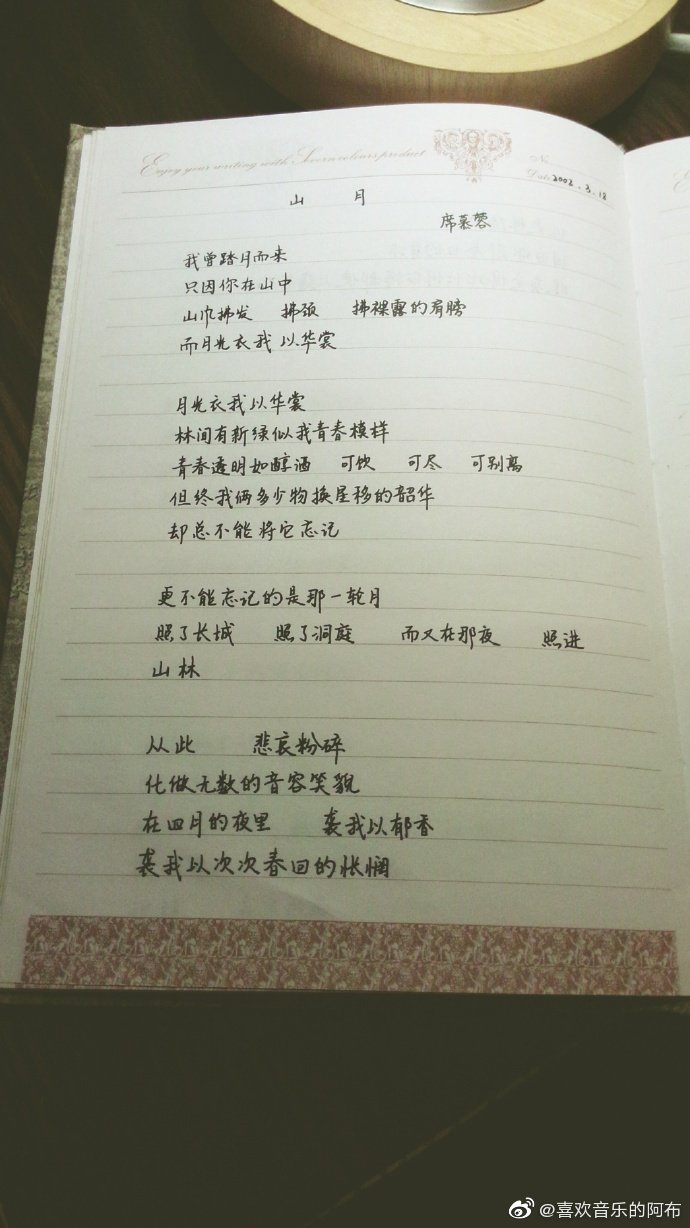 Enjoy your writing with Seven colours product
No
Date 2002.3.18
山 月
席慕蓉
我曾踏月而来
只因你在山中
山巾拂发 拂颈 拂裸露的肩膀
而月光衣我以华裳
月光衣我以华裳
林间有新绿似我青春模样
青春透明如醇酒 可饮 可尽 可别离
但终我俩多少物换星移的韶华
却总不能将它忘记
更不能忘记的是那一轮月
照了长城 照了洞庭 而又在那夜 照进
山林
从此 悲哀粉碎
化做无数的音容笑貌
在四月的夜里 袭我以郁香
袭我以次次春回的怅惘
@喜欢音乐的阿布